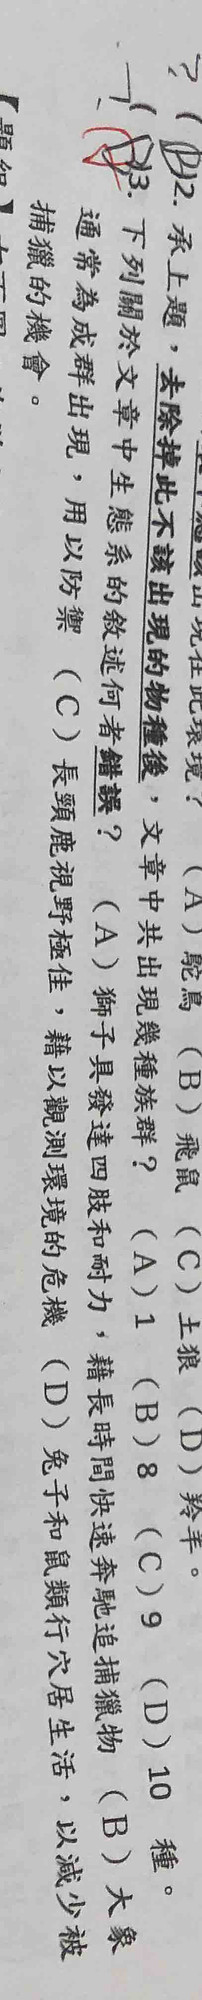 出現在此環境？ （A）鴕鳥 （B）飛鼠 （C）土狼 （D）羚羊。
?（D）12. 承上題，去除掉此不該出現的物種後，文章中共出現幾種族群？ （A）1 （B）8 （C）9 （D）10 種。
（D）13. 下列關於文章中生態系的敘述何者錯誤？ （A）獅子具發達四肢和耐力，藉長時間快速奔馳追捕獵物 （B）大象
通常為成群出現，用以防禦 （C）長頸鹿視野極佳，藉以觀測環境的危機 （D）兔子和鼠類行穴居生活，以減少被
捕獵的機會。
【題組】